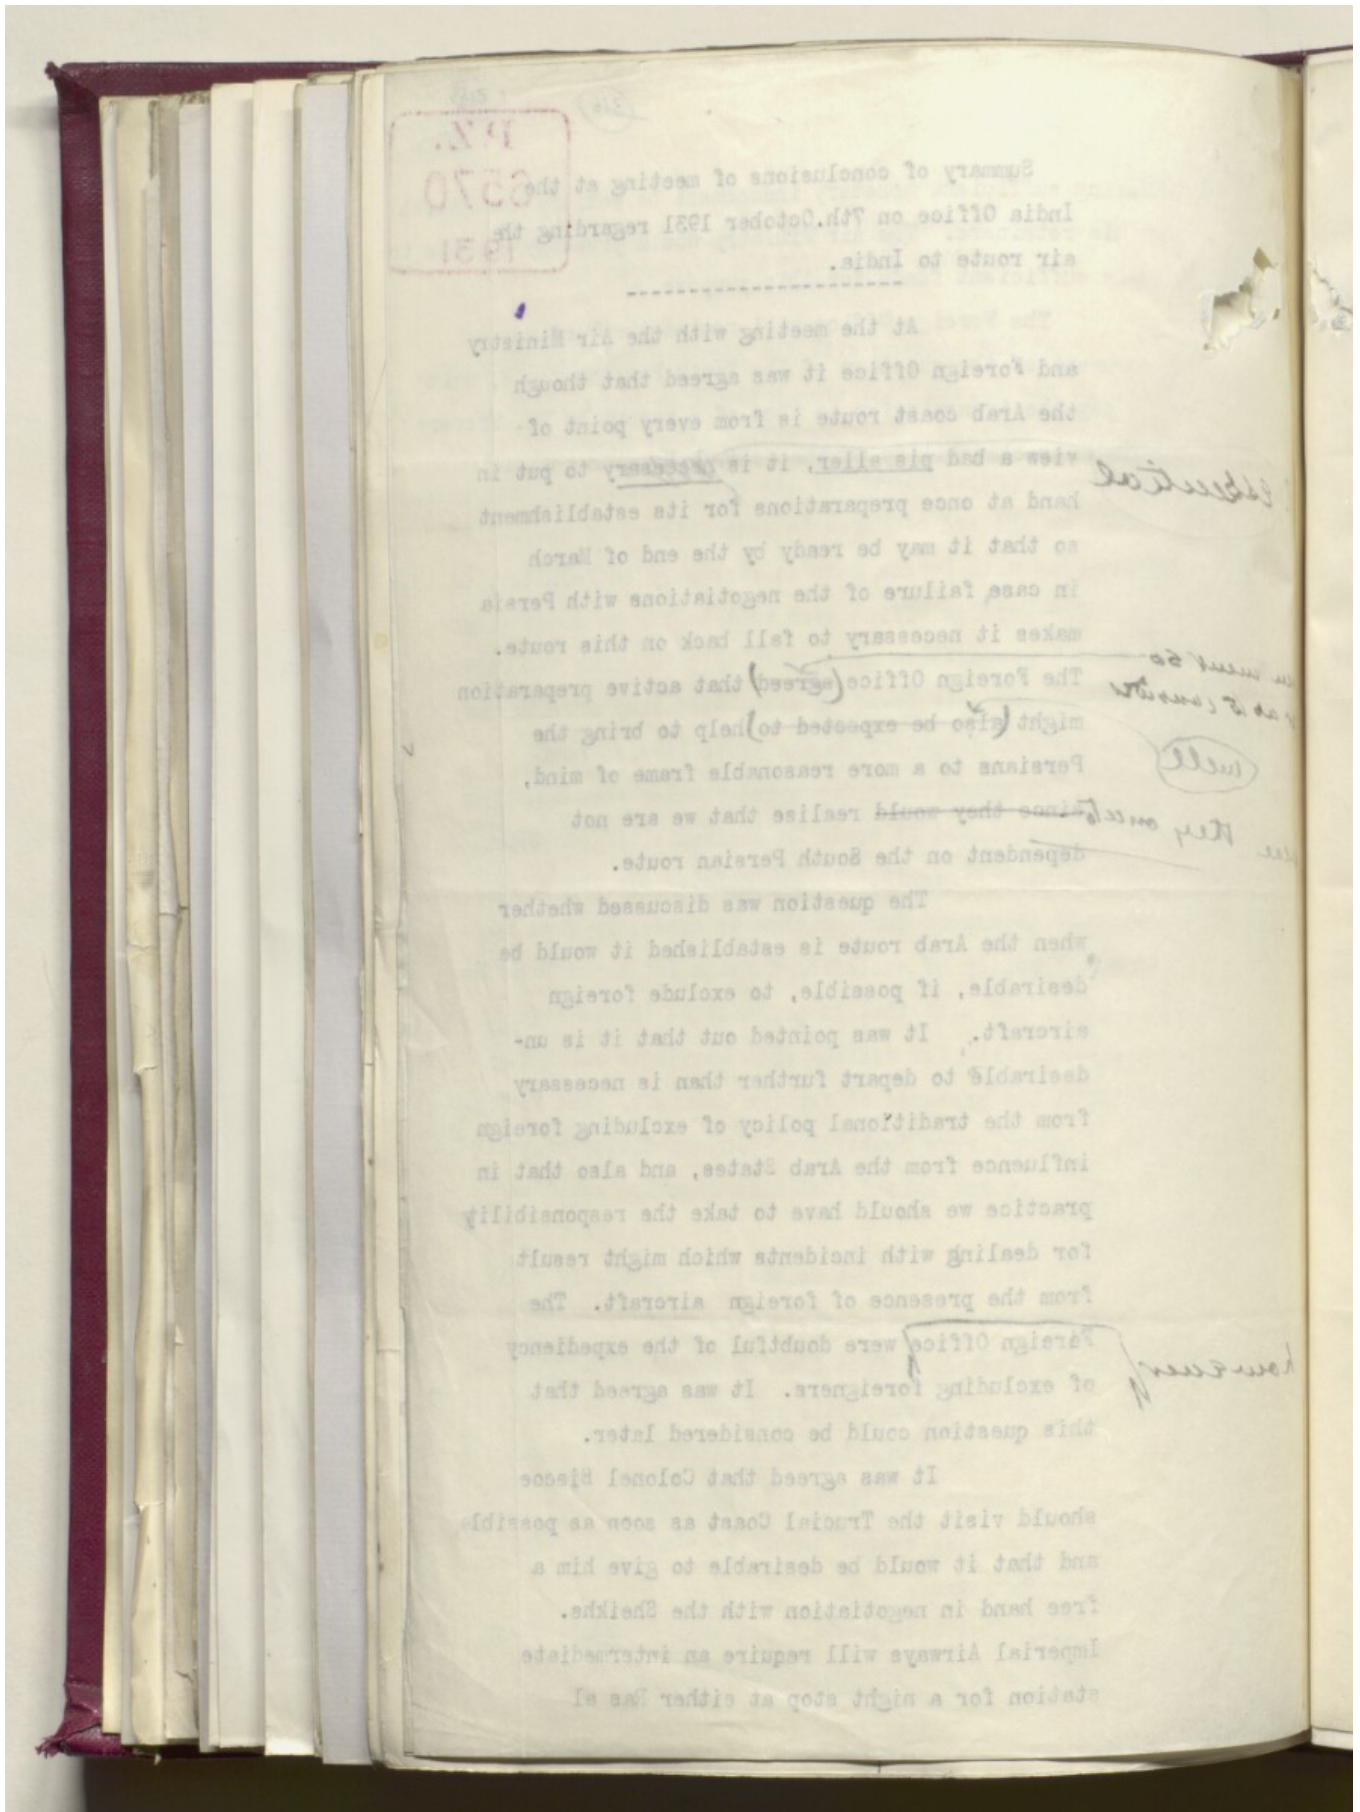 P.Z.
6570
1931
Summary of conclusions of meeting at the
India Office on 7th.October 1931 regarding the
air route to India.
---------------------
At the meeting with the Air Ministry
and Foreign Office it was agreed that though
the Arab coast route is from every point of
view a bad pis aller, it is necessary to put in
essential
hand at once preparations for its establishment
so that it may be ready by the end of March
in case failure of the negotiations with Persia
makes it necessary to fall back on this route.
The Foreign Office (agreed) that active preparation
might (also be expected to) help to bring the
well
Persians to a more reasonable frame of mind,
since they would realise that we are not
they once
dependent on the South Persian route.
The question was discussed whether
when the Arab route is established it would be
desirable, if possible, to exclude foreign
aircraft. It was pointed out that it is un-
desirable to depart further than is necessary
from the traditional policy of excluding foreign
influence from the Arab States, and also that in
practice we should have to take the responsibility
for dealing with incidents which might result
from the presence of foreign aircraft. The
Foreign Office were doubtful of the expediency
however
of excluding foreigners. It was agreed that
this question could be considered later.
It was agreed that Colonel Biscoe
should visit the Trucial Coast as soon as possible
and that it would be desirable to give him a
free hand in negotiation with the Sheikhs.
Imperial Airways will require an intermediate
station for a night stop at either Ras al